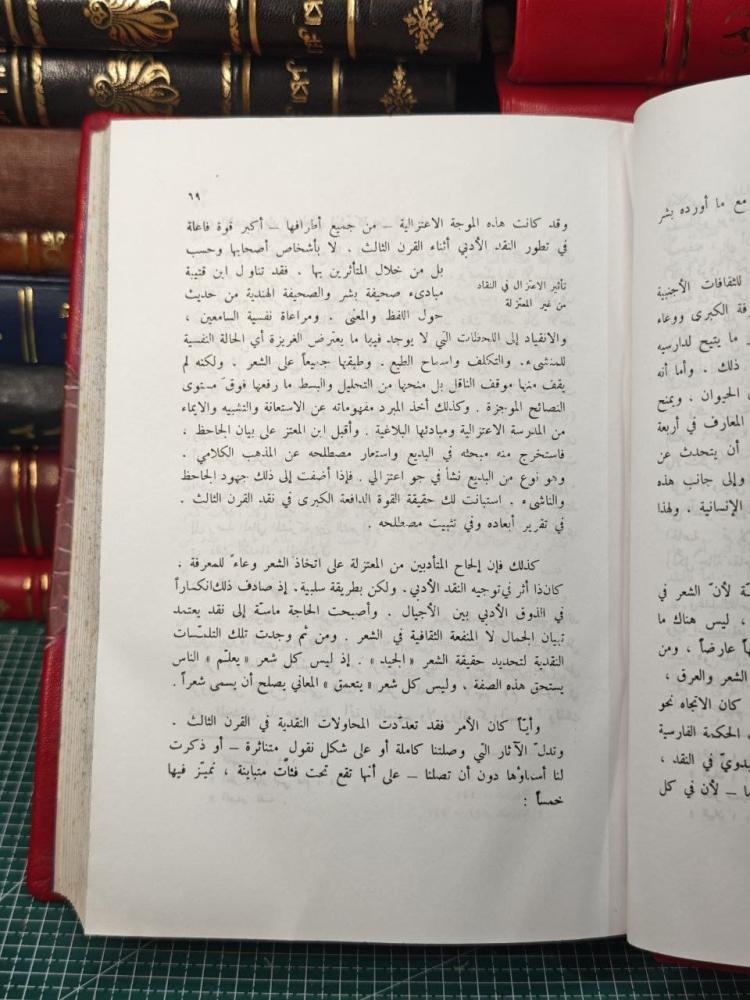 ٦٩
وقد كانت هذه الموجة الاعتزالية — من جميع أطرافها — أكبر قوة فاعلة
في تطور النقد الأدبي أثناء القرن الثالث . لا بأشخاص أصحابها وحسب
تأثير الاعتزال في النقاد
من غير المعتزلة
بل من خلال المتأثرين بها . فقد تناول ابن قتيبة
مبادىء صحيفة بشر والصحيفة الهندية من حديث
حول اللفظ والمعنى . ومراعاة نفسية السامعين ،
والانقياد إلى اللحظات التي لا يوجد فيها ما يعترض الغريزة أي الحالة النفسية
للمنشىء. والتكلف واسماح الطبع . وطبقها جميعاً على الشعر . ولكنه لم
يقف منها موقف الناقل بل منحها من التحليل والبسط ما رفعها فوق مستوى
النصائح الموجزة . وكذلك أخذ المبرد مفهوماته عن الاستعانة والتشبيه والايماء
من المدرسة الاعتزالية ومبادئها البلاغية . وأقبل ابن المعتز على بيان الجاحظ ،
فاستخرج منه مبحثه في البديع واستعار مصطلحه عن المذهب الكلامي .
وهو نوع من البديع نشأ في جو اعتزالي . فإذا أضفت إلى ذلك جهود الجاحظ
والناشىء . استبانت لك حقيقة القوة الدافعة الكبرى في نقد القرن الثالث .
في تقرير أبعاده وفي تثبيت مصطلحه .
كذلك فإن إلحاح المتأدبين من المعتزلة على اتخاذ الشعر وعاءً للمعرفة .
كان ذا أثر في توجيه النقد الأدبي. ولكن بطريقة سلبية. إذ صادف ذلك انكساراً
في الذوق الأدبي بين الأجيال . وأصبحت الحاجة ماسّة إلى نقد يعتمد
تبيان الجمال لا المنفعة الثقافية في الشعر . ومن ثم وجدت تلك التلمّسات
النقدية لتحديد حقيقة الشعر « الجيد » . إذ ليس كل شعر « يعلّم » الناس
يستحق هذه الصفة ، وليس كل شعر « يتعمق » المعاني يصلح أن يسمى شعراً .
وأيّاً كان الأمر فقد تعدّدت المحاولات النقدية في القرن الثالث .
وتدلّ الآثار التي وصلتنا كاملة أو على شكل نقول متناثرة — أو ذكرت
لنا أسماؤها دون أن تصلنا — على أنها تقع تحت فئات متباينة ، نميّز فيها
خمساً :
مع ما أورده بشر
للثقافات الأجنبية
الكبرى ووعاء
ما يتيح لدارسيه
ذلك . وأما أنه
الحيوان ، ويمنح
المعارف في أربعة
أن يتحدث عن
وإلى جانب هذه
الإنسانية . ولهذا
لأنّ الشعر في
، ليس هناك ما
عارضاً ، ومن
الشعر والعرق ،
كان الاتجاه نحو
الحكمة الفارسية
في النقد ،
— لأن في كل